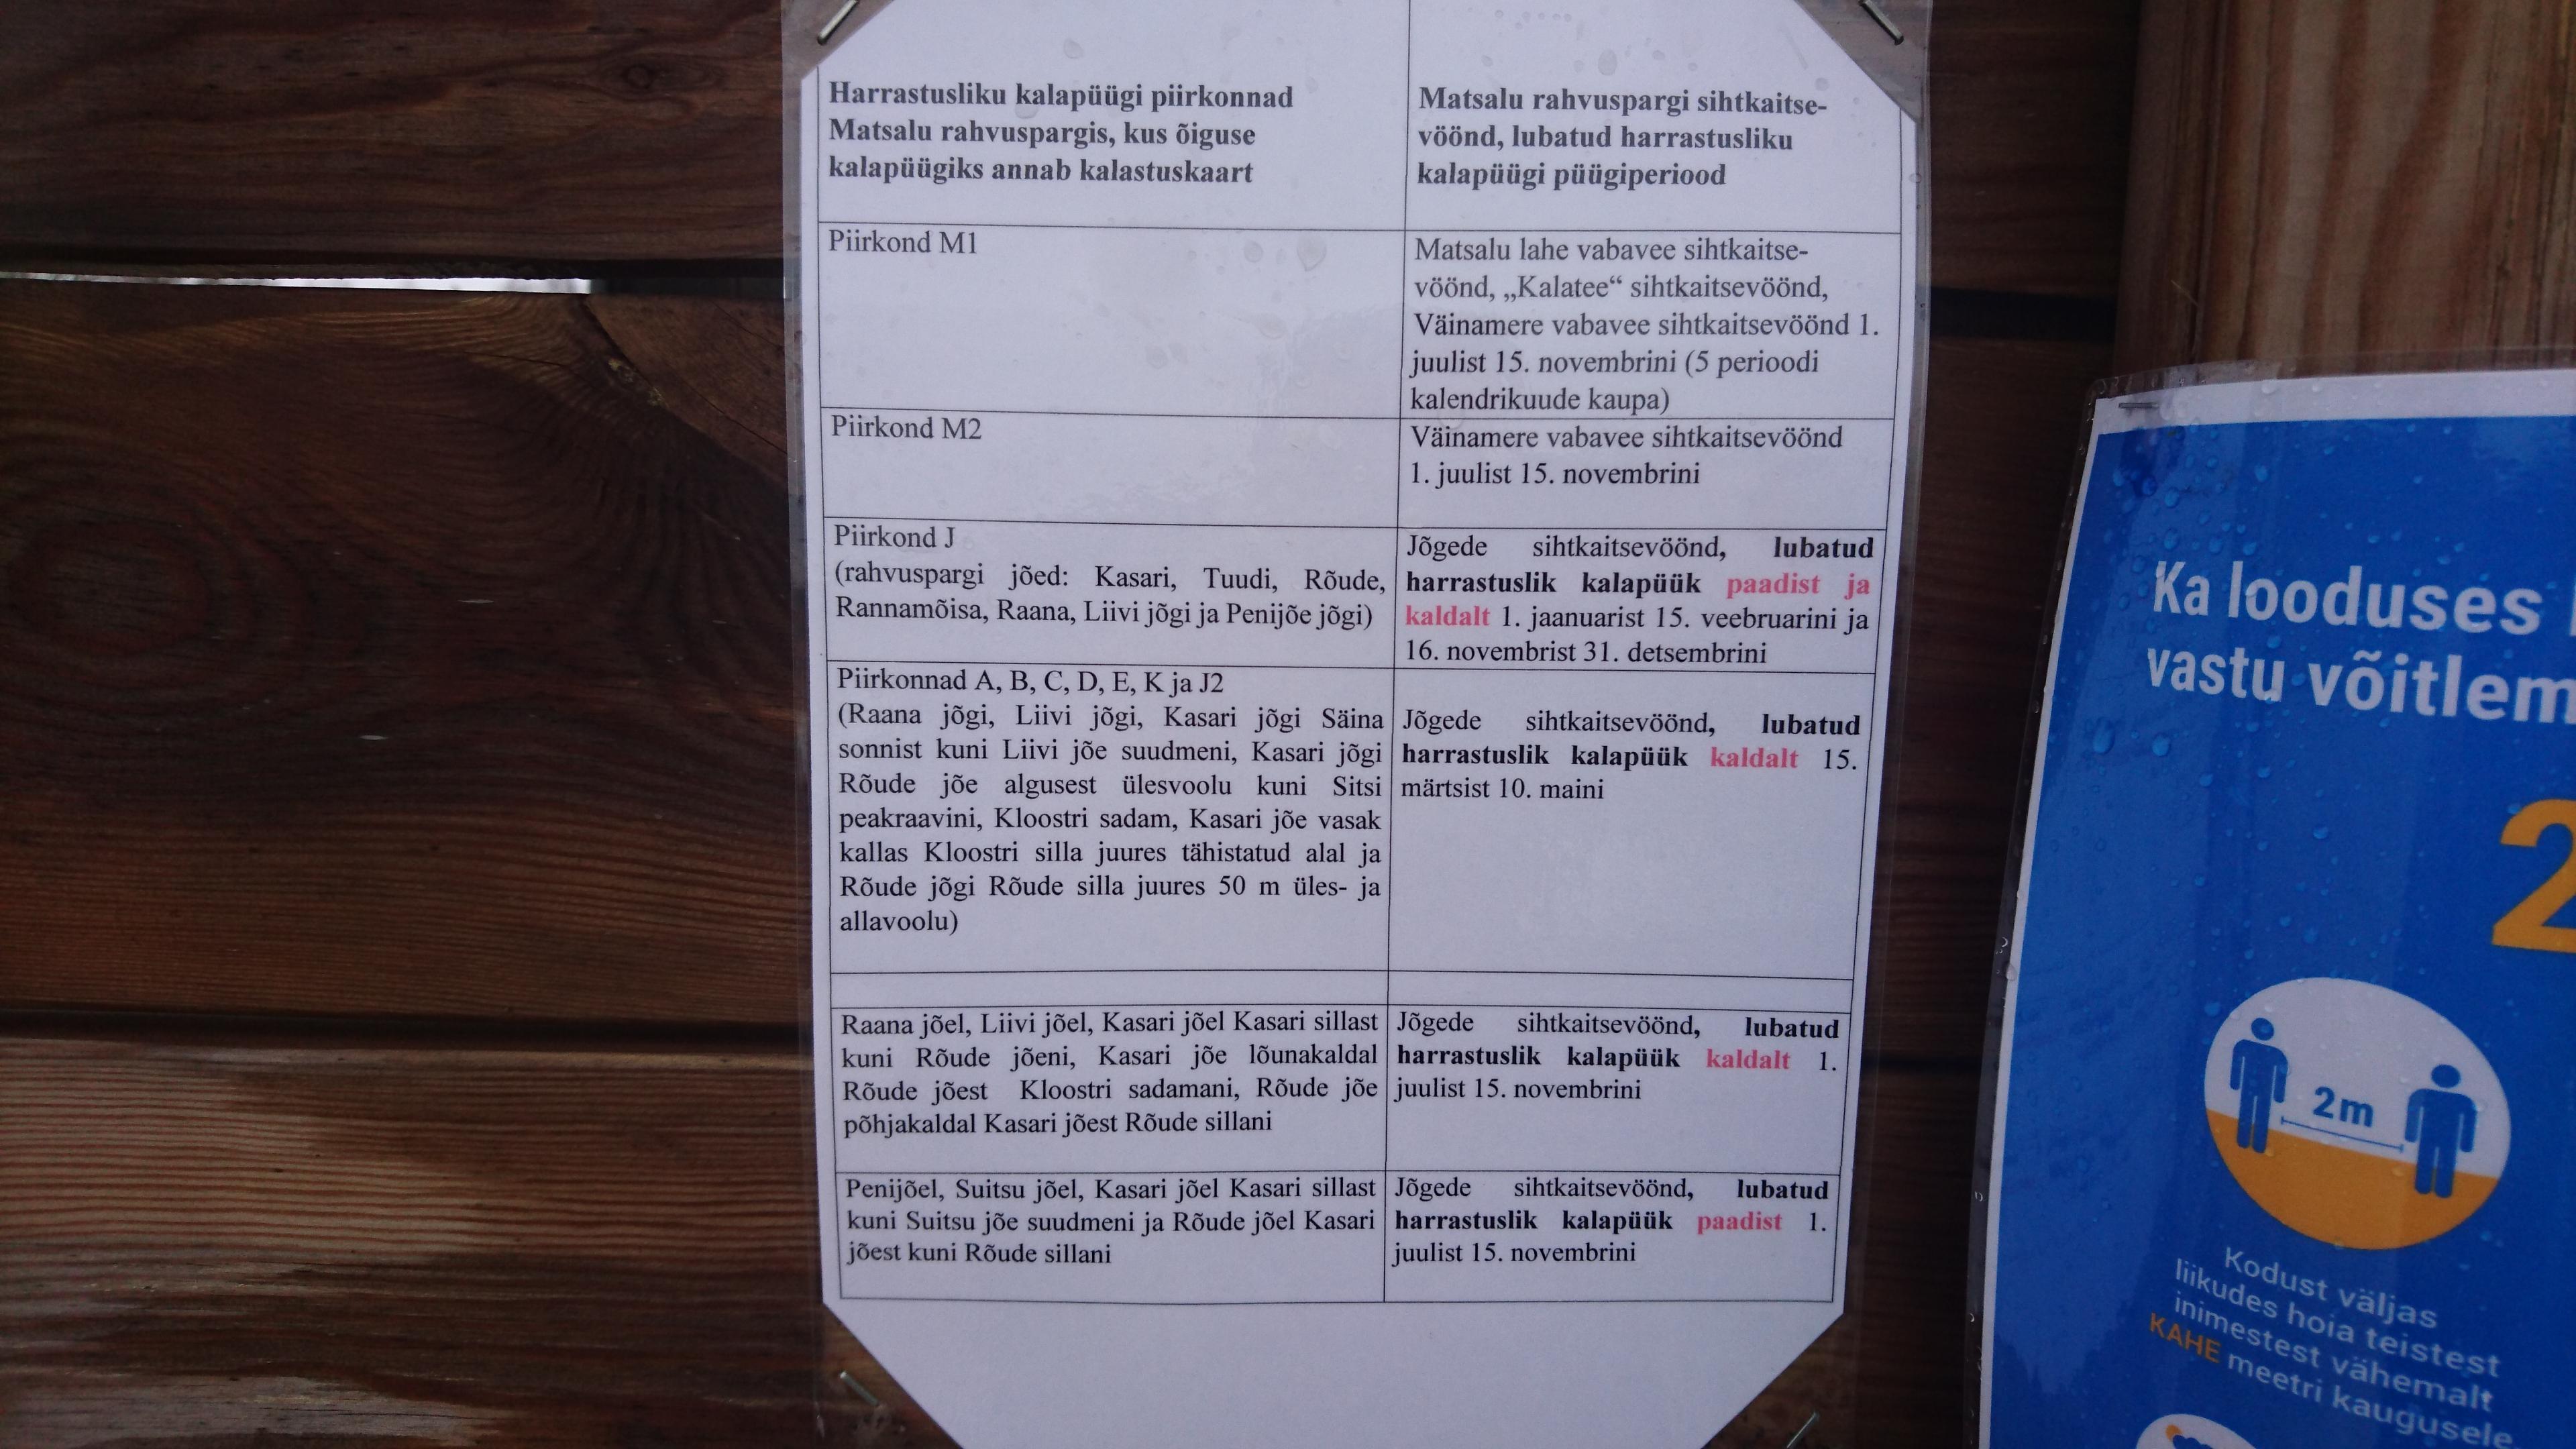 Harrastusliku kalapüügi piirkonnad
Matsalu rahvuspargis, kus õiguse
kalapüügiks annab kalastuskaart
Matsalu rahvuspargi sihtkaitse-
vöönd, lubatud harrastusliku
kalapüügi püügiperiood
Piirkond M1
Matsalu lahe vabavee sihtkaitse-
vöönd, „Kalatee“ sihtkaitsevöönd,
Väinamere vabavee sihtkaitsevöönd 1.
juulist 15. novembrini (5 perioodi
kalendrikuude kaupa)
Piirkond M2
Väinamere vabavee sihtkaitsevöönd
1. juulist 15. novembrini
Piirkond J
(rahvuspargi jõed: Kasari, Tuudi, Rõude,
Rannamõisa, Raana, Liivi jõgi ja Penijõe jõgi)
Jõgede sihtkaitsevöönd, lubatud
harrastuslik kalapüük paadist ja
kaldalt 1. jaanuarist 15. veebruarini ja
16. novembrist 31. detsembrini
Piirkonnad A, B, C, D, E, K ja J2
(Raana jõgi, Liivi jõgi, Kasari jõgi Säina
sonnist kuni Liivi jõe suudmeni, Kasari jõgi
Rõude jõe algusest ülesvoolu kuni Sitsi
peakraavini, Kloostri sadam, Kasari jõe vasak
kallas Kloostri silla juures tähistatud alal ja
Rõude jõgi Rõude silla juures 50 m üles- ja
allavoolu)
Jõgede sihtkaitsevöönd, lubatud
harrastuslik kalapüük kaldalt 15.
märtsist 10. maini
Raana jõel, Liivi jõel, Kasari jõel Kasari sillast
kuni Rõude jõeni, Kasari jõe lõunakaldal
Rõude jõest Kloostri sadamani, Rõude jõe
põhjakaldal Kasari jõest Rõude sillani
Jõgede sihtkaitsevöönd, lubatud
harrastuslik kalapüük kaldalt 1.
juulist 15. novembrini
Penijõel, Suitsu jõel, Kasari jõel Kasari sillast
kuni Suitsu jõe suudmeni ja Rõude jõel Kasari
jõest kuni Rõude sillani
Jõgede sihtkaitsevöönd, lubatud
harrastuslik kalapüük paadist 1.
juulist 15. novembrini
Ka looduses
vastu võitlem
2
2m
Kodust väljas
liikudes hoia teistest
inimestest vähemalt
KAHE meetri kaugusele